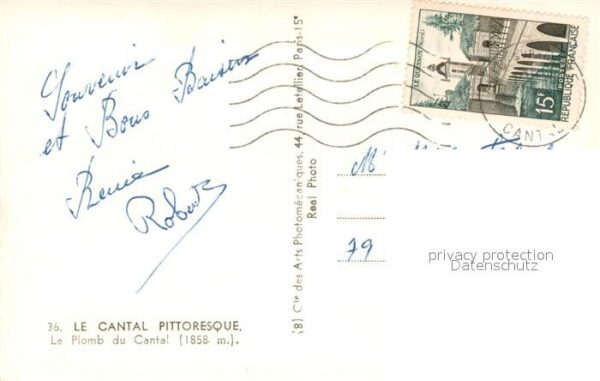 Souvenir
et Bons Baisers
Renée
Robert
36. LE CANTAL PITTORESQUE.
Le Plomb du Cantal (1858 m.).
(8) Cie des Arts Photomécaniques, 44, rue Letellier, Paris-15e
Real Photo
LE QUESNOY (Nord)
15F
POSTES
REPUBLIQUE FRANÇAISE
CANTAL
Mr
79
privacy protection
Datenschutz